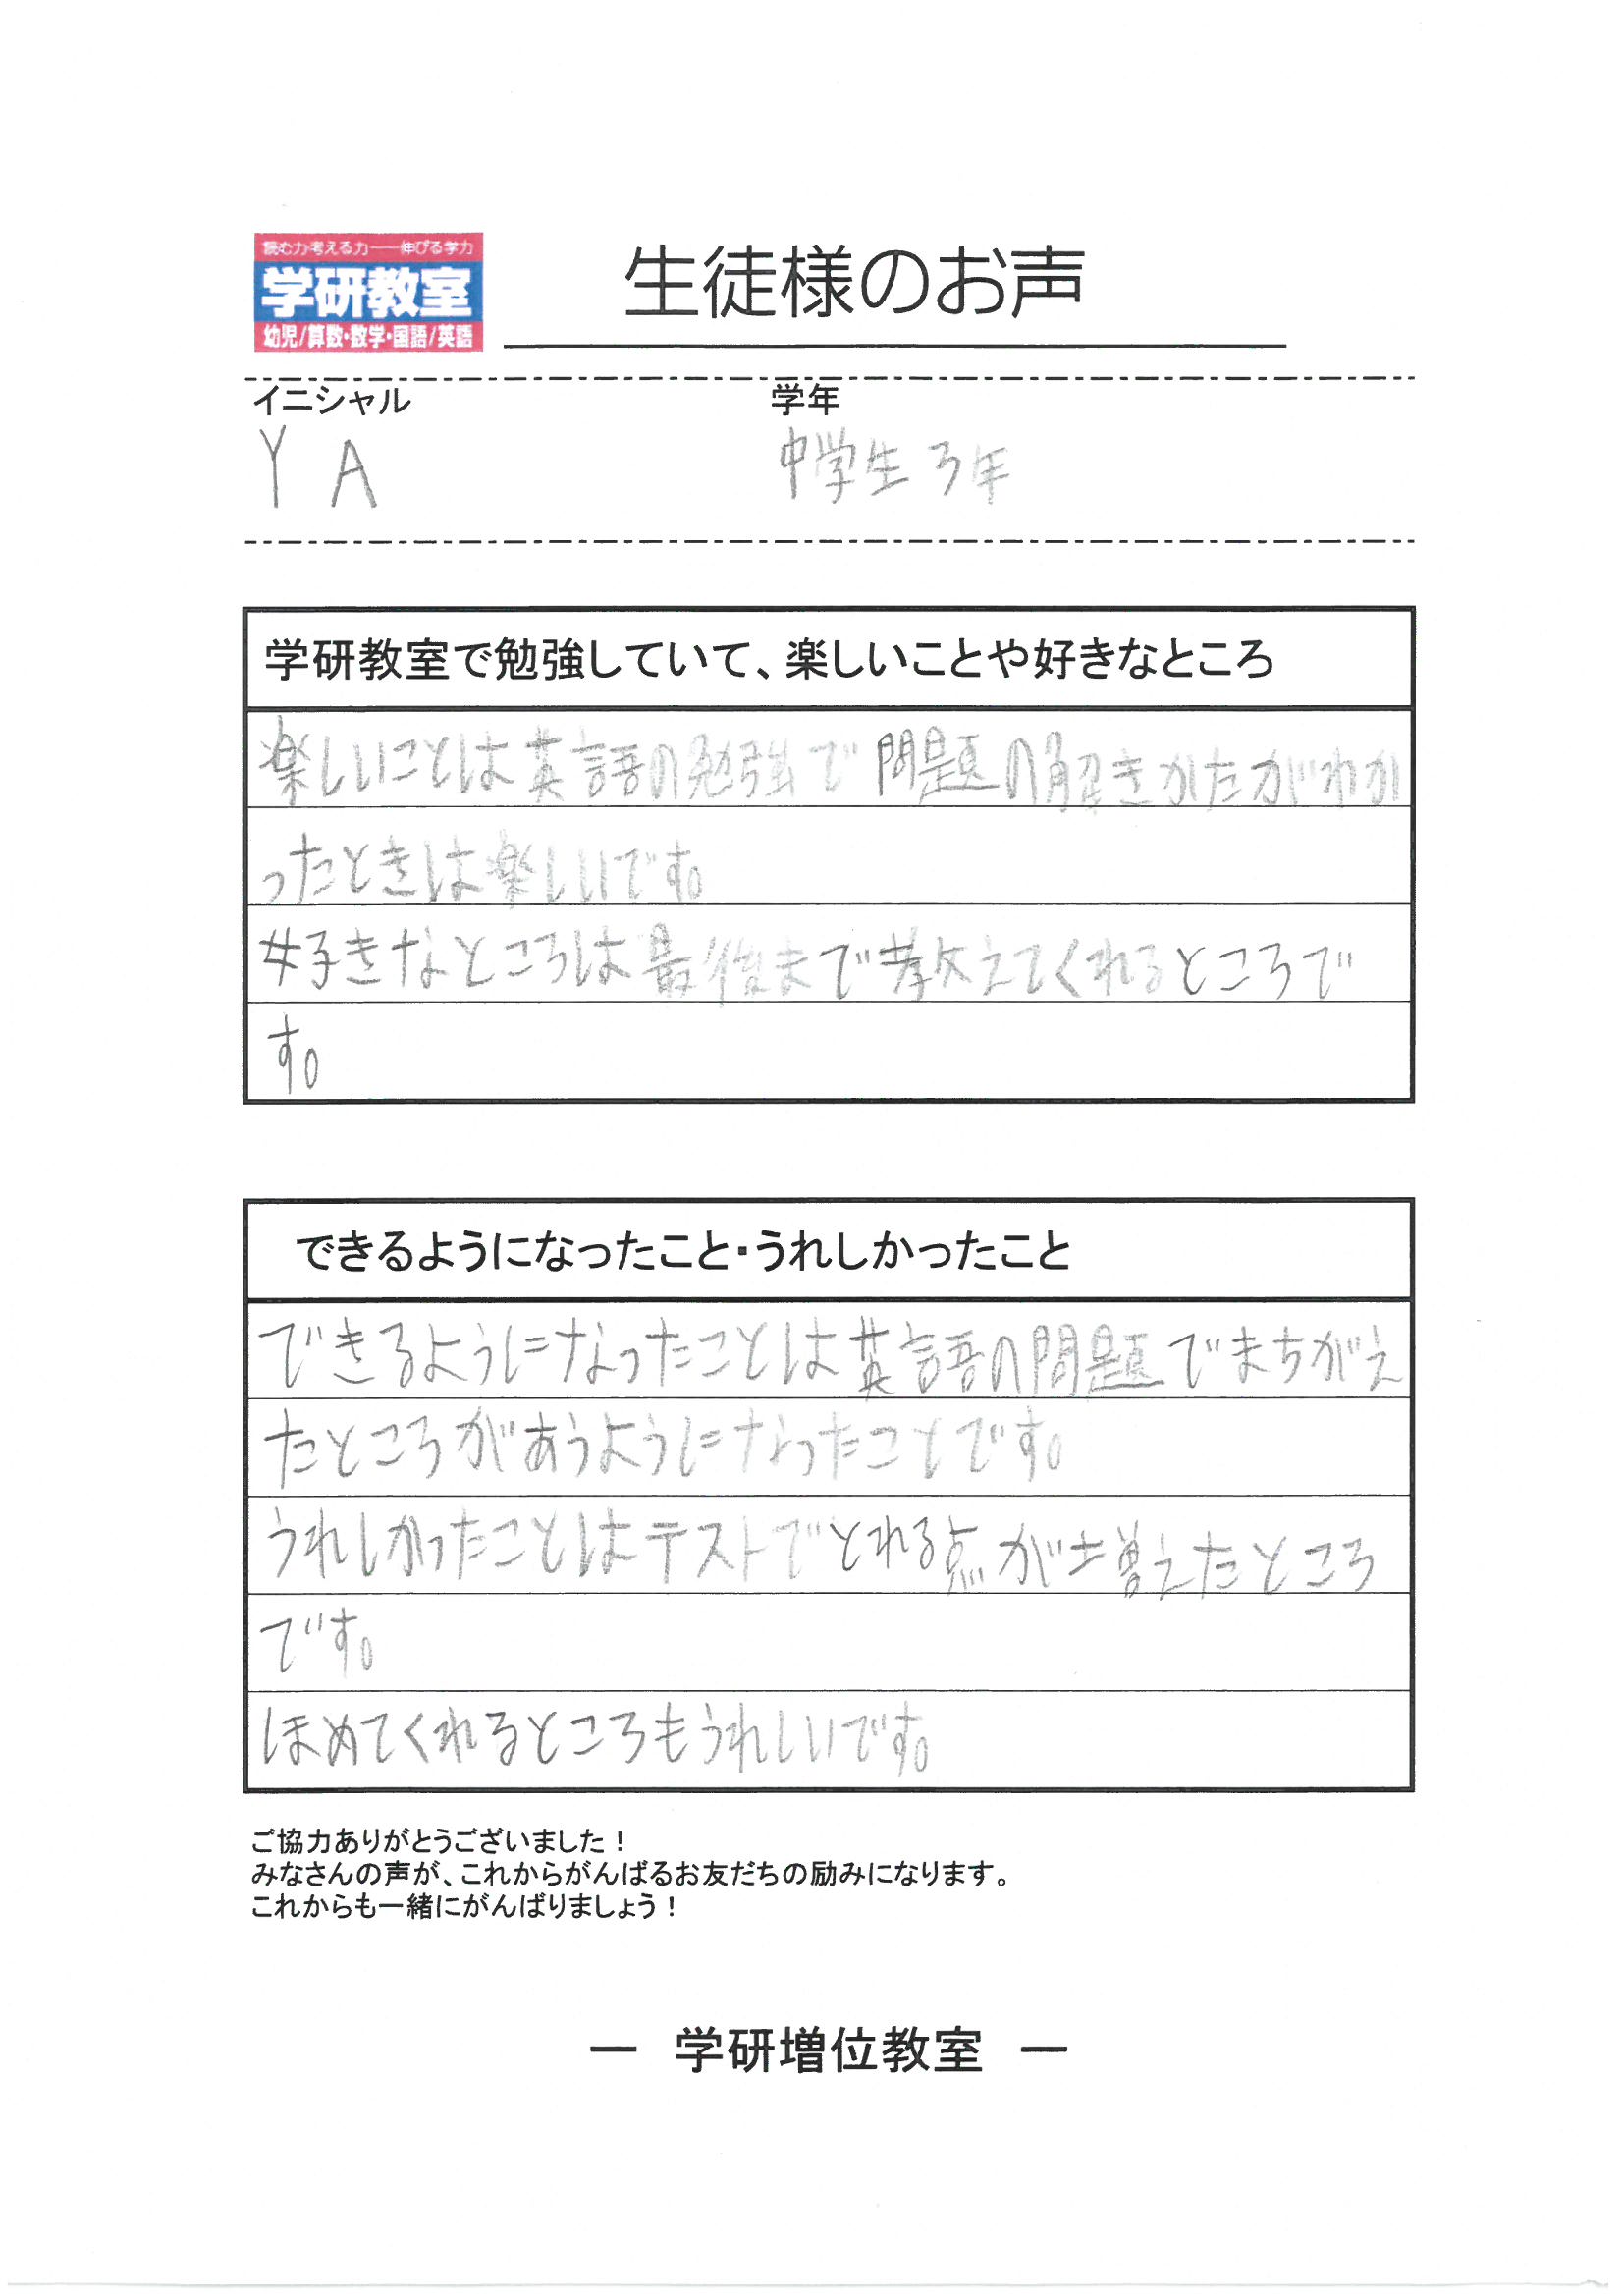 読む力考える力――伸びる学力
学研教室
幼児/算数・数学・国語/英語
生徒様のお声
イニシャル
学年
Y A
中学生3年
学研教室で勉強していて、楽しいことや好きなところ
楽しいことは英語の勉強で問題の解きかたがわか
ったときは楽しいです。
好きなところは最後まで教えてくれるところで
す。
できるようになったこと・うれしかったこと
できるようになったことは英語の問題でまちがえ
たところがあうようになったことです。
うれしかったことはテストでとれる点が増えたところ
です。
ほめてくれるところもうれしいです。
ご協力ありがとうございました！
みなさんの声が、これからがんばるお友だちの励みになります。
これからも一緒にがんばりましょう！
― 学研増位教室 ―